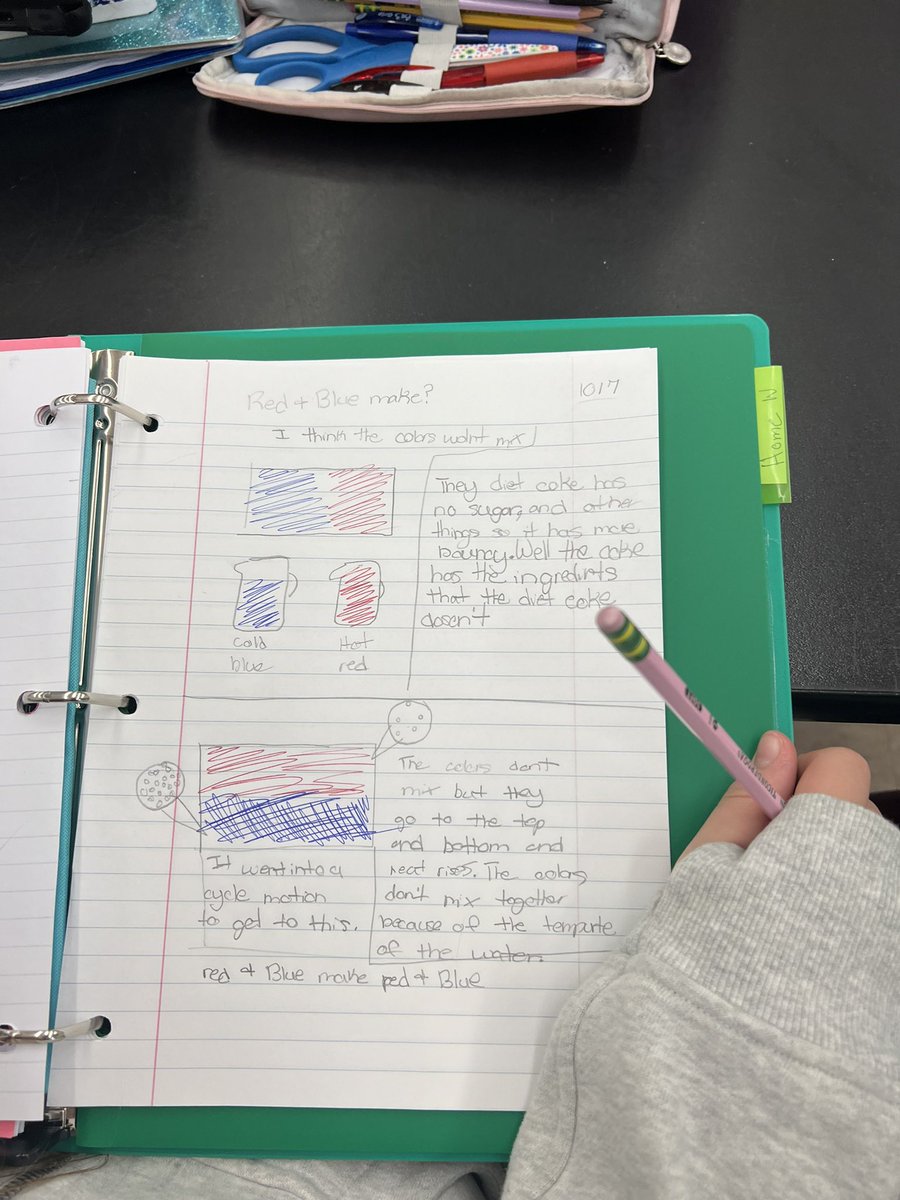 Red + Blue make?
1017
I think the colors wolnt mix
They diet coke has
no sugar, and other
things so it has more
bouncy. Well the coke
has the ingredints
that the diet coke
doesn't
Cold
blue
Hot
red
The colors don't
mix but they
go to the top
and bottom and
heat rises. The colors
don't mix together
because of the tempurte
of the water.
It went into a
cycle motion
to get to this.
red + Blue make red + Blue
Home W